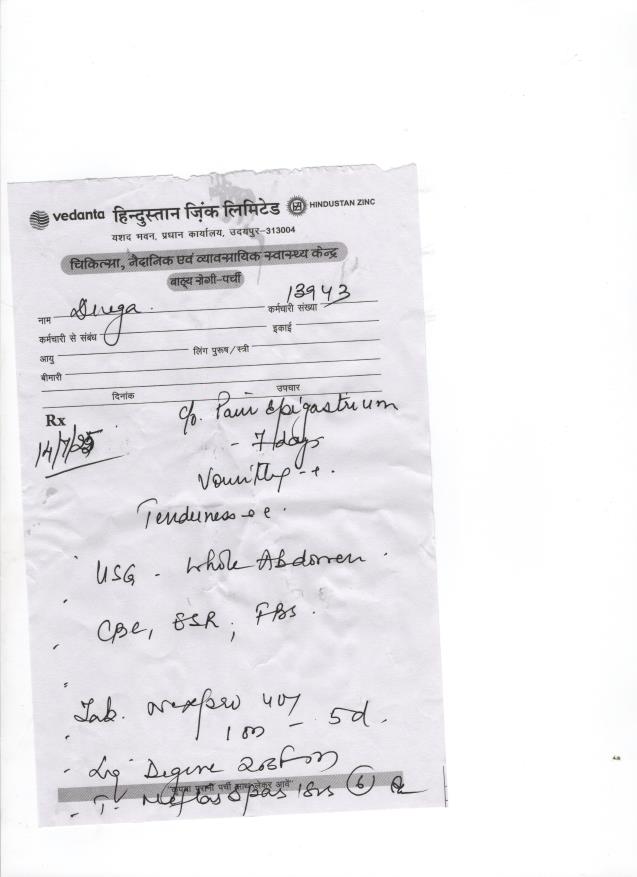 vedanta हिन्दुस्तान ज़िंक लिमिटेड HINDUSTAN ZINC
यशद भवन, प्रधान कार्यालय, उदयपुर-313004
चिकित्सा, नैदानिक एवं व्यावसायिक स्वास्थ्य केन्द्र
बाह्य रोगी-पर्ची
नाम Durga कर्मचारी संख्या 13943
कर्मचारी से संबंध इकाई
आयु लिंग पुरूष/स्त्री
बीमारी
दिनांक उपचार
Rx c/o. Pain Epigastrium
14/7/25 - 7 days
Vomiting - +.
Tenderness
USG - Whole Abdomen.
CBC, ESR, FBS.
Tab. Nexpro 40
- 5d.
Degine
"कृपया पुरानी पर्ची साथ लेकर आवें"
- T. Meftaspas